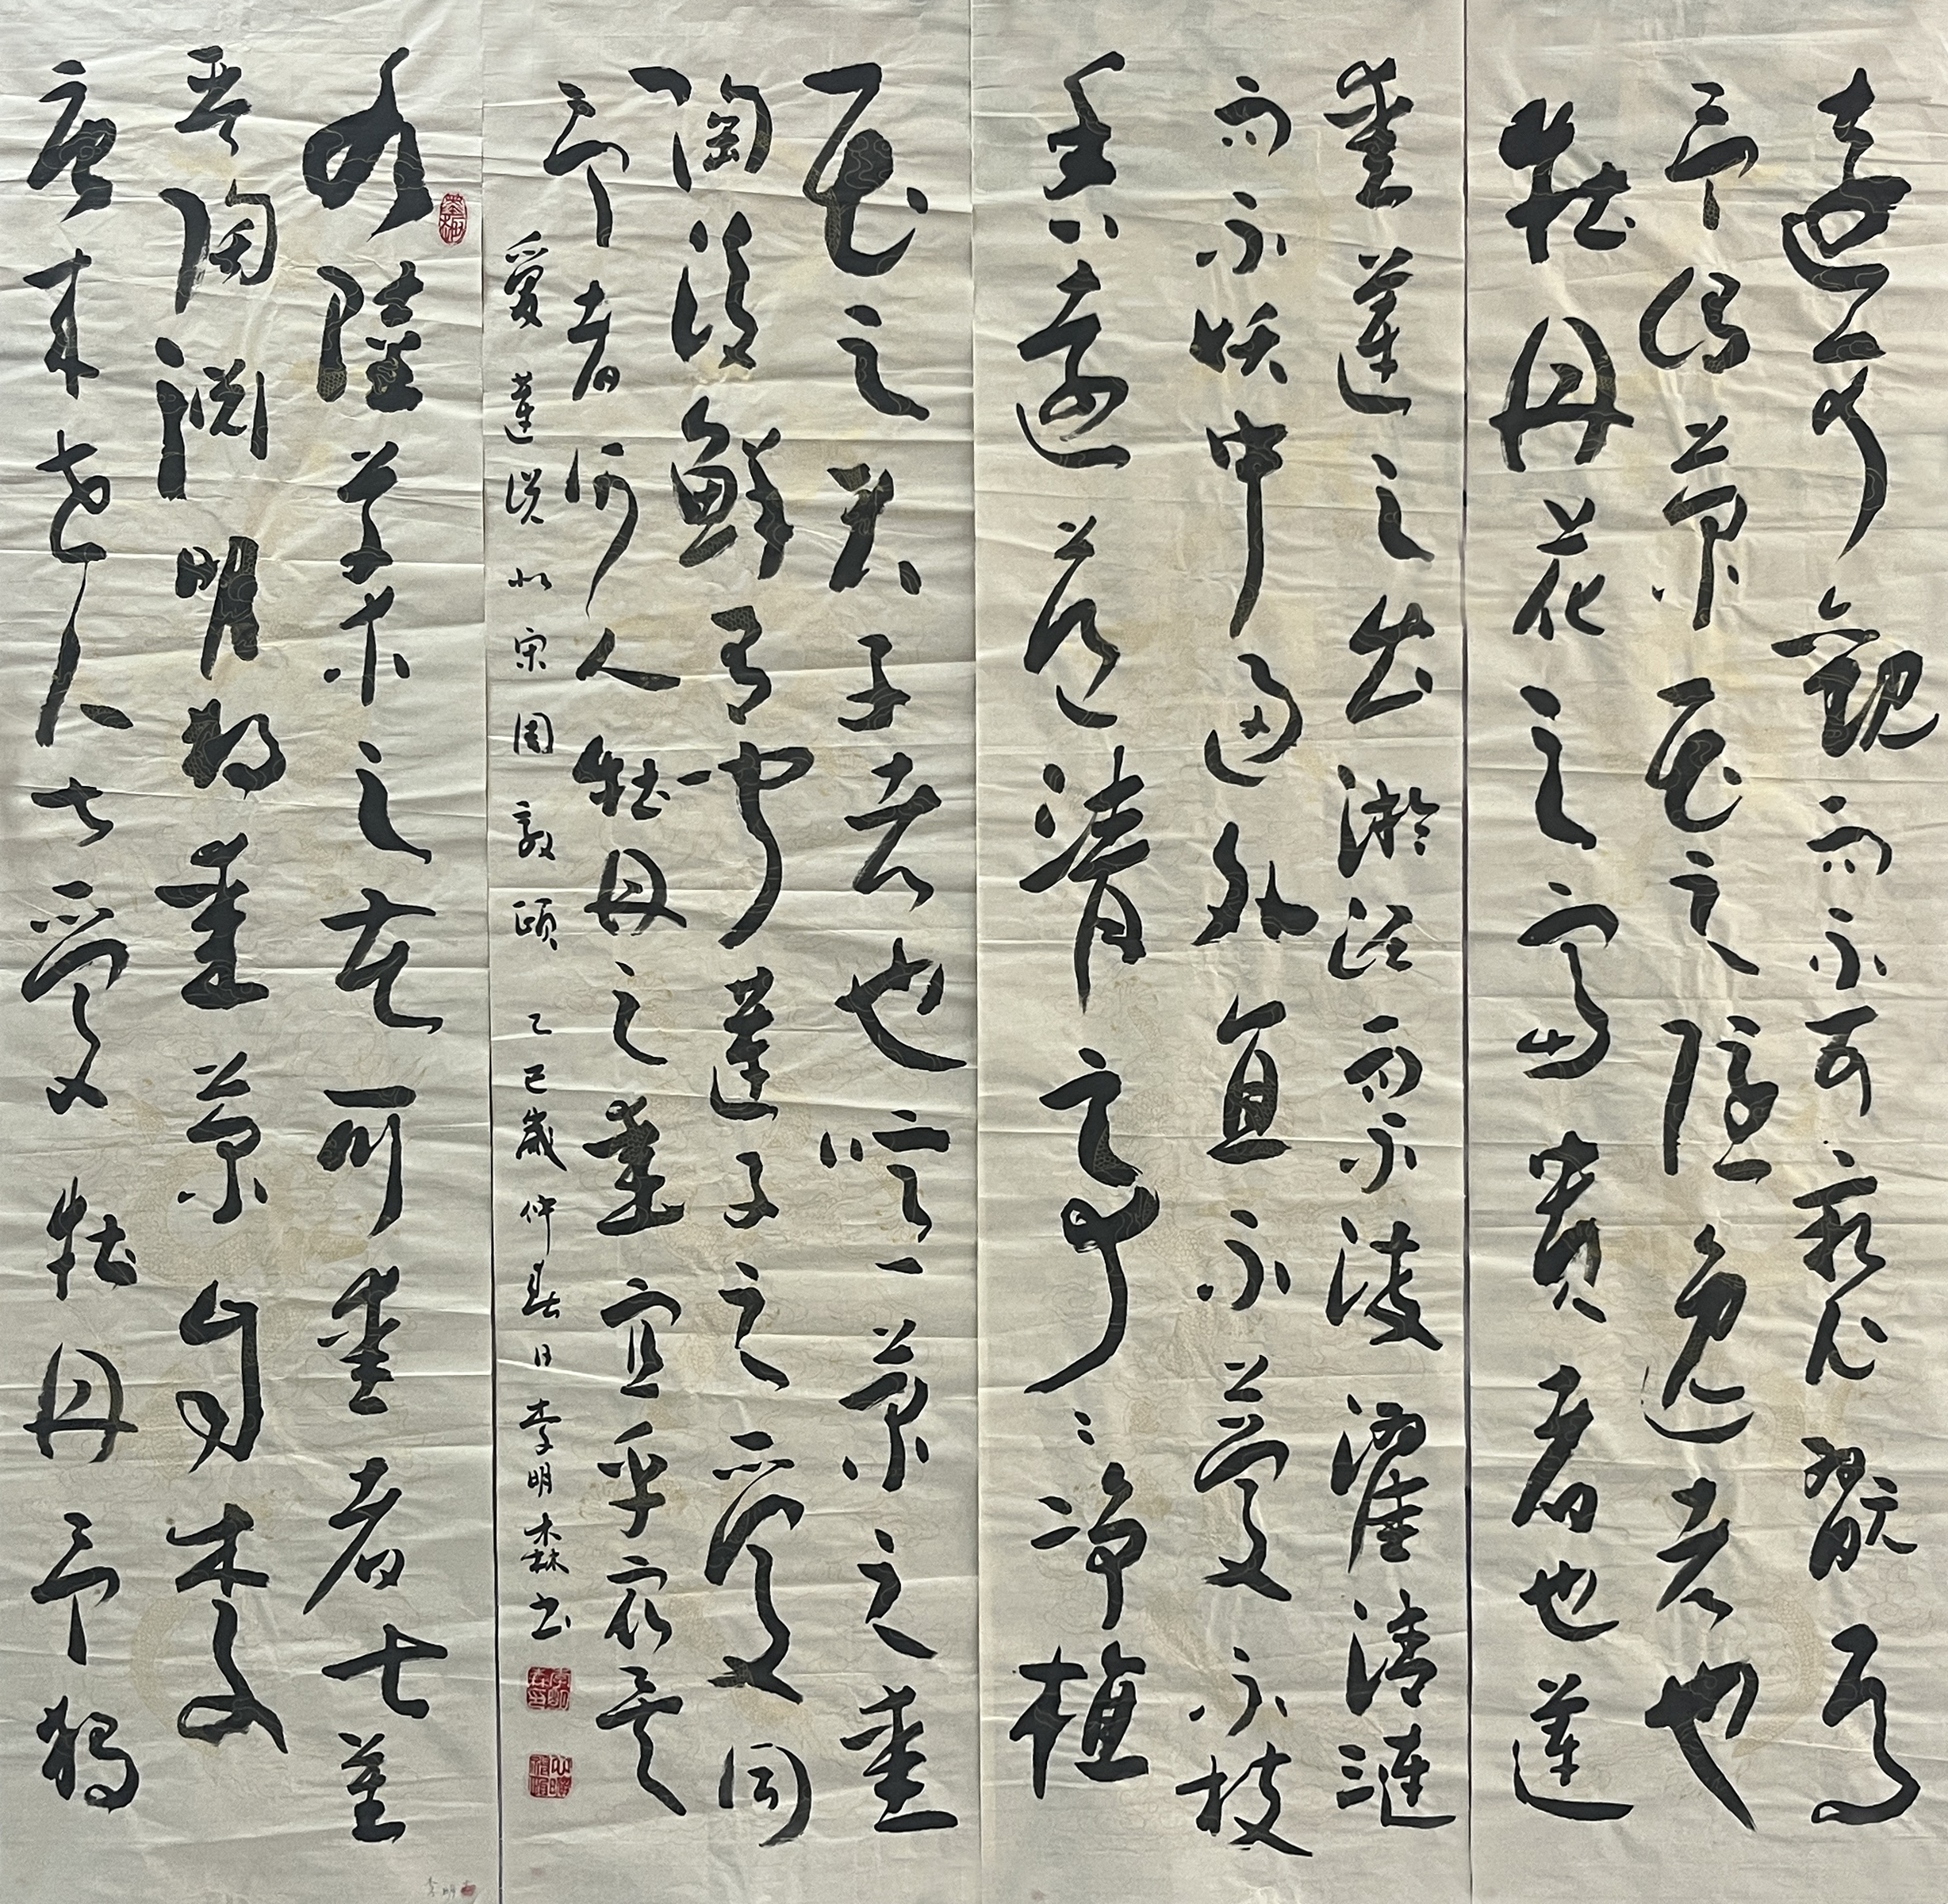 水陸草木之花可愛者甚蕃
晉陶淵明獨愛菊自李
唐來世人甚愛牡丹予獨
愛蓮之出淤泥而不染濯清漣
而不妖中通外直不蔓不枝
香遠益清亭亭淨植
遠可觀而不可褻翫焉
予謂菊花之隱逸者也
牡丹花之富貴者也蓮
花之君子者也噫菊之愛
陶後鮮有聞蓮之愛同
予者何人牡丹之愛宜乎眾矣
愛蓮説北宋周敦頤乙巳歲仲春日李明森书